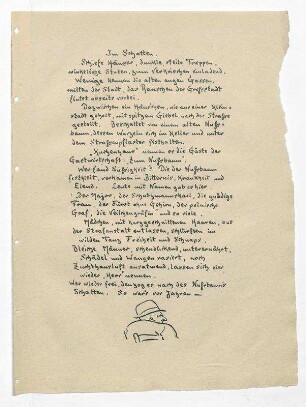 Im Schatten.
Schiefe Häuser, dunkle, steile Treppen,
winkelige Stuben, zum Verkriechen einladend.
Wenige kennen die alten engen Gassen,
mitten der Stadt, das Rauschen der Großstadt
flutet abseits vorbei.
Dazwischen ein Häuschen, wie aus einer Klein-
stadt geholt, mit spitzem Giebel nach der Straße
gestellt. Beschattet von einem alten Nuß-
baum, dessen Wurzeln sich im Keller und unter
dem Straßenpflaster festhalten.
nennen es die Gäste der
Gastwirtschaft: Zum Nußbaum".
Wer fand Süßigkeit? Die der Nußbaum
festhielt, verkamen in Bitternis, Krankheit und
Elend. Leute mit Namen gab es hier
Der Major, der Schutzmannskarl, die gnädige
Frau, der Fürst ohne Gehirn, der polnische
Graf, die Veilchengräfin und so viele
Mädchen, mit kurzgeschnittenen Haaren, aus
der Strafanstalt entlassen, schlürften im
wilden Tanz Freiheit und Schnaps.
Bleiche Männer, unterernährt,
Schädel und Wangen rasiert, noch
Zuchthausluft ausatmend, lassen sich hier
wieder „Herr" nennen.
Wer wieder frei, den zog es nach des Nußbaums
Schatten. So war's vor Jahren —